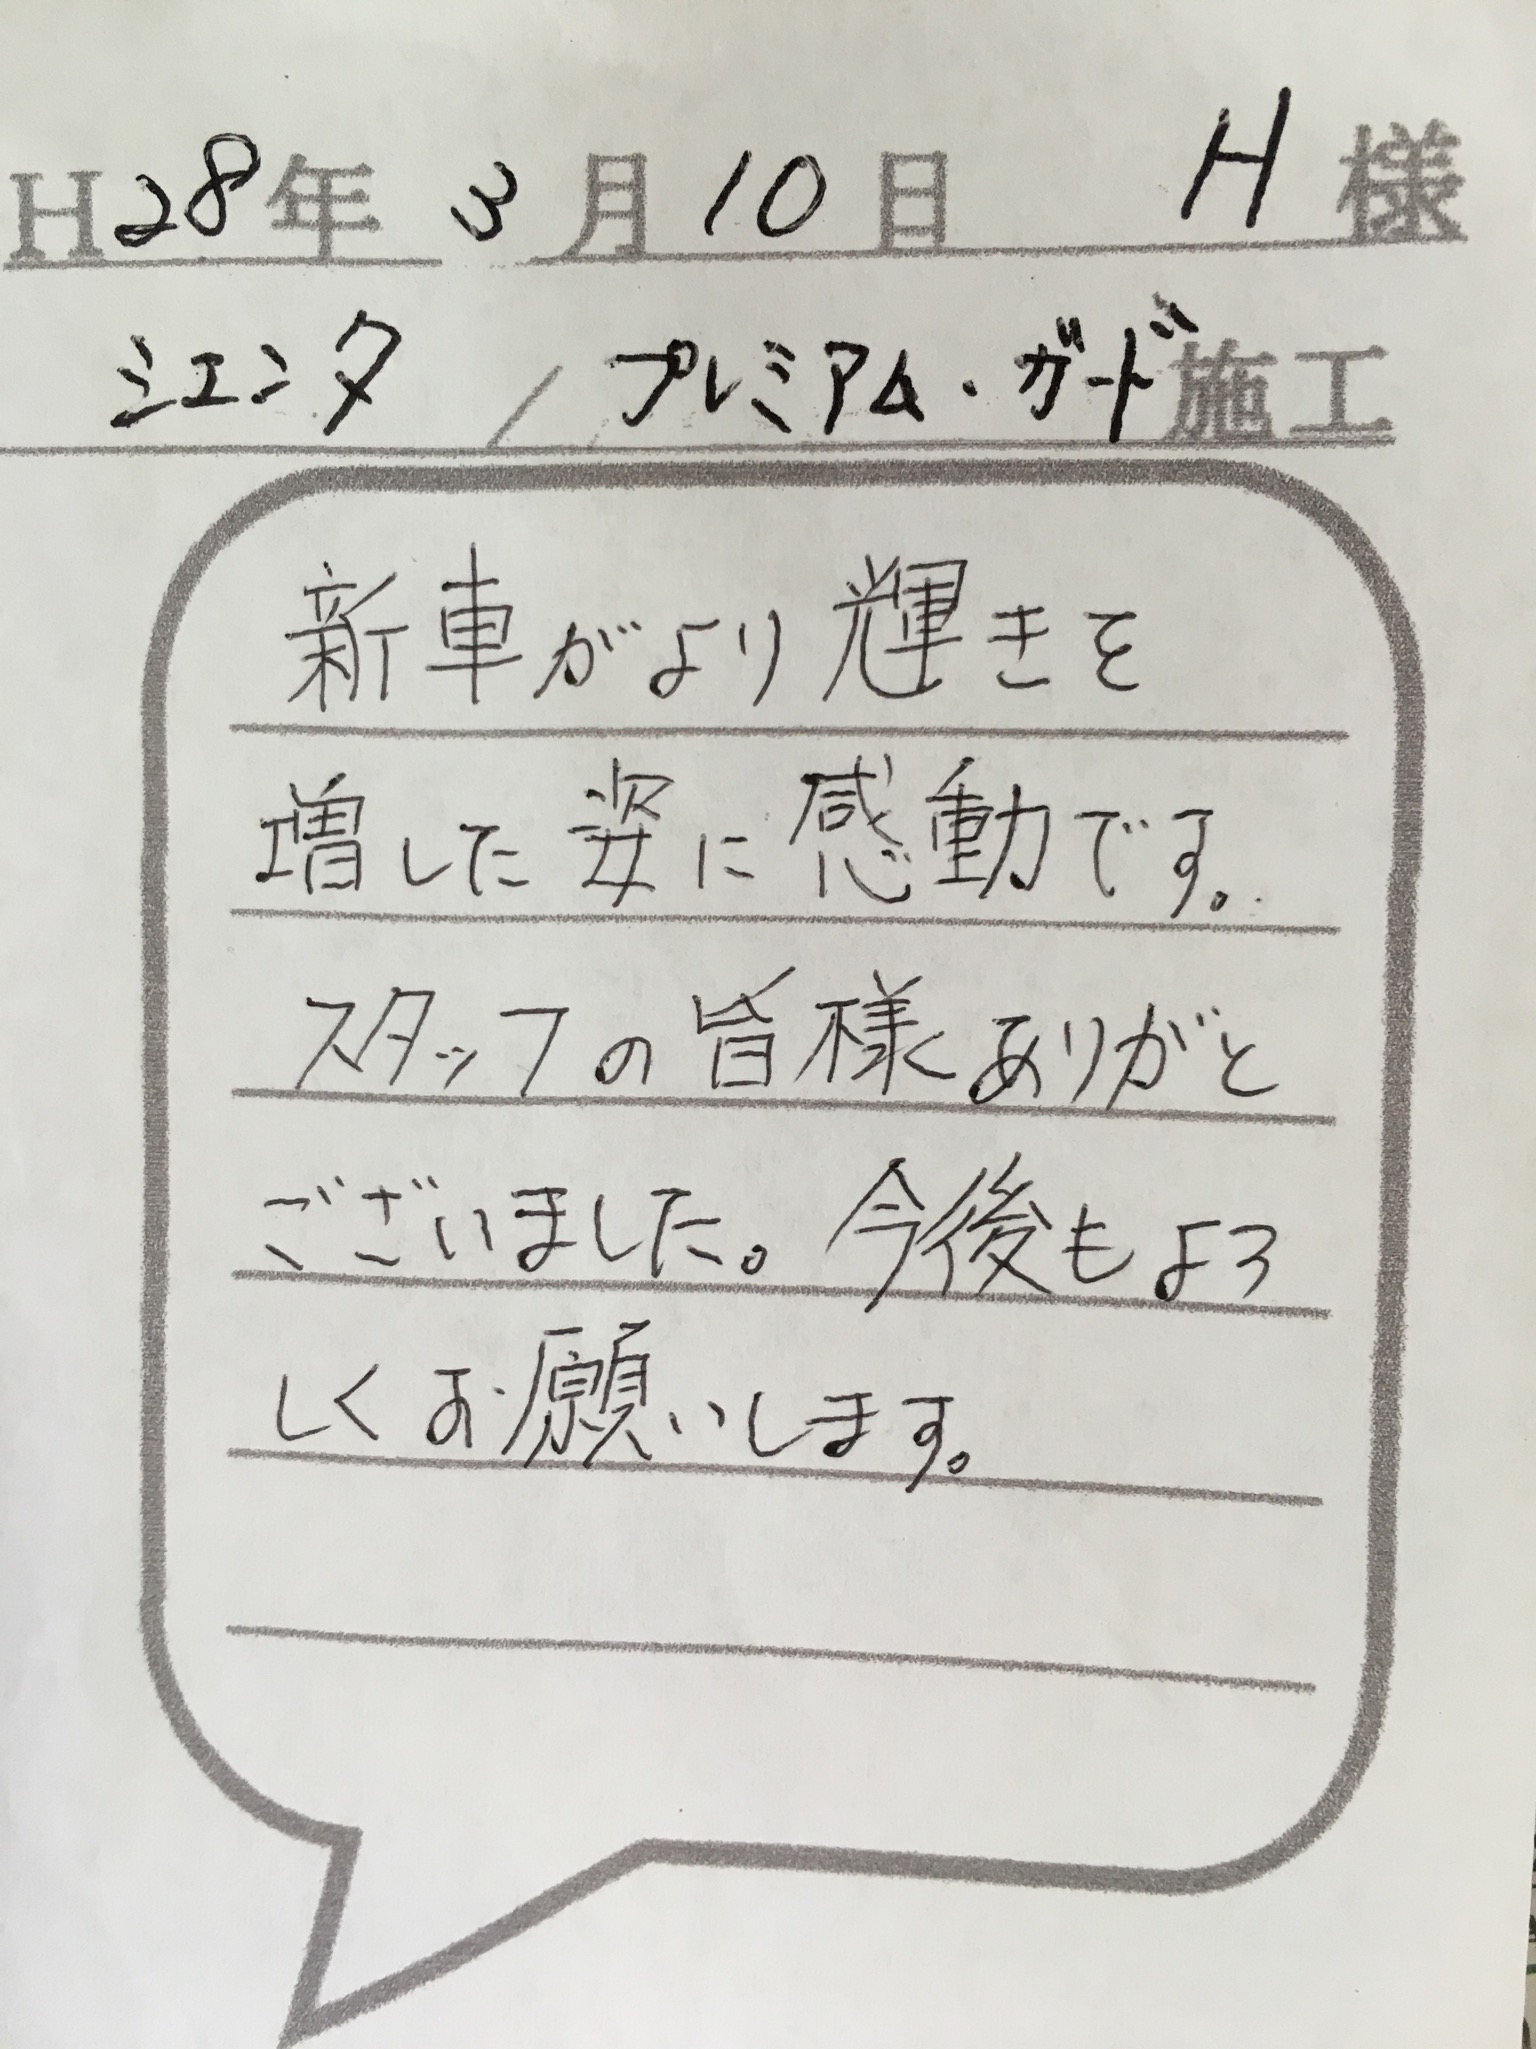 H28年 3月10日 H様
シエンタ / プレミアム・ガード施工
新車がより輝きを
増した姿に感動です。
スタッフの皆様ありがと
ございました。今後もよろ
しくお願いします。